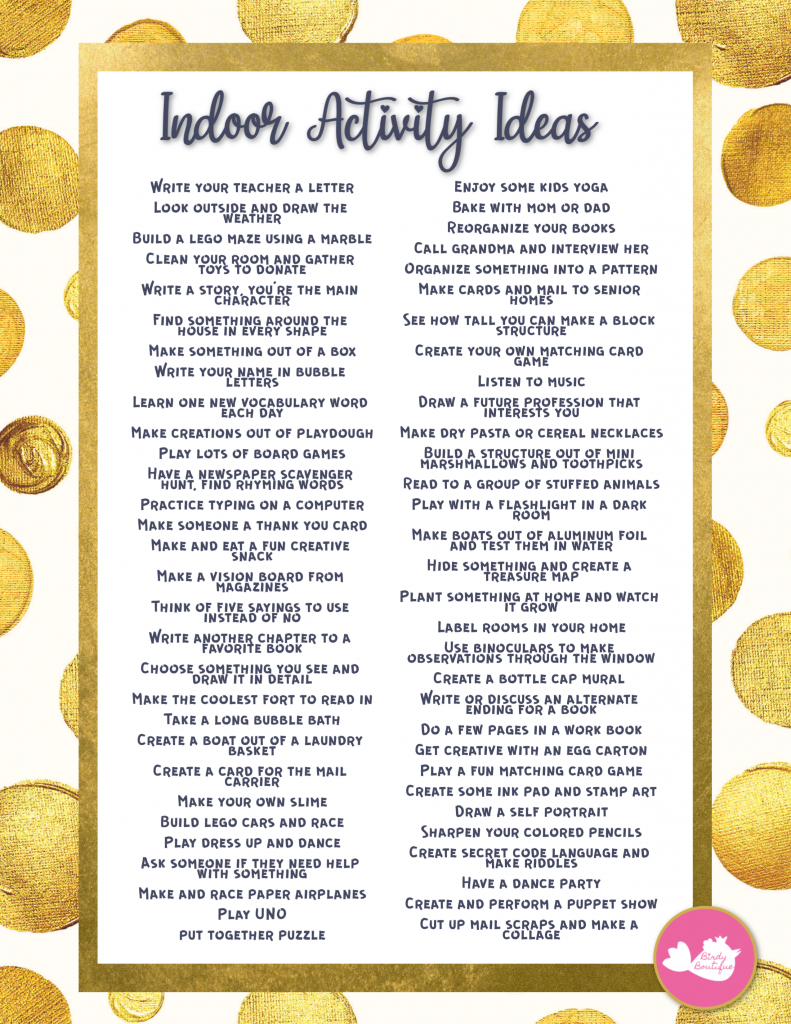 Indoor Activity Ideas
Write your teacher a letter
Look outside and draw the
weather
Build a lego maze using a marble
Clean your room and gather
toys to donate
Write a story, you're the main
character
Find something around the
house in every shape
Make something out of a box
Write your name in bubble
letters
Learn one new vocabulary word
each day
Make creations out of playdough
Play lots of board games
Have a newspaper scavenger
hunt, find rhyming words
Practice typing on a computer
Make someone a thank you card
Make and eat a fun creative
snack
Make a vision board from
magazines
Think of five sayings to use
instead of no
Write another chapter to a
favorite book
Choose something you see and
draw it in detail
Make the coolest fort to read in
Take a long bubble bath
Create a boat out of a laundry
basket
Create a card for the mail
carrier
Make your own slime
Build lego cars and race
Play dress up and dance
Ask someone if they need help
with something
Make and race paper airplanes
Play UNO
put together puzzle
Enjoy some kids yoga
Bake with mom or dad
Reorganize your books
Call grandma and interview her
Organize something into a pattern
Make cards and mail to senior
homes
See how tall you can make a block
structure
Create your own matching card
game
Listen to music
Draw a future profession that
interests you
Make dry pasta or cereal necklaces
Build a structure out of mini
marshmallows and toothpicks
Read to a group of stuffed animals
Play with a flashlight in a dark
room
Make boats out of aluminum foil
and test them in water
Hide something and create a
treasure map
Plant something at home and watch
it grow
Label rooms in your home
Use binoculars to make
observations through the window
Create a bottle cap mural
Write or discuss an alternate
ending for a book
Do a few pages in a work book
Get creative with an egg carton
Play a fun matching card game
Create some ink pad and stamp art
Draw a self portrait
Sharpen your colored pencils
Create secret code language and
make riddles
Have a dance party
Create and perform a puppet show
Cut up mail scraps and make a
collage
Birdy
Boutique